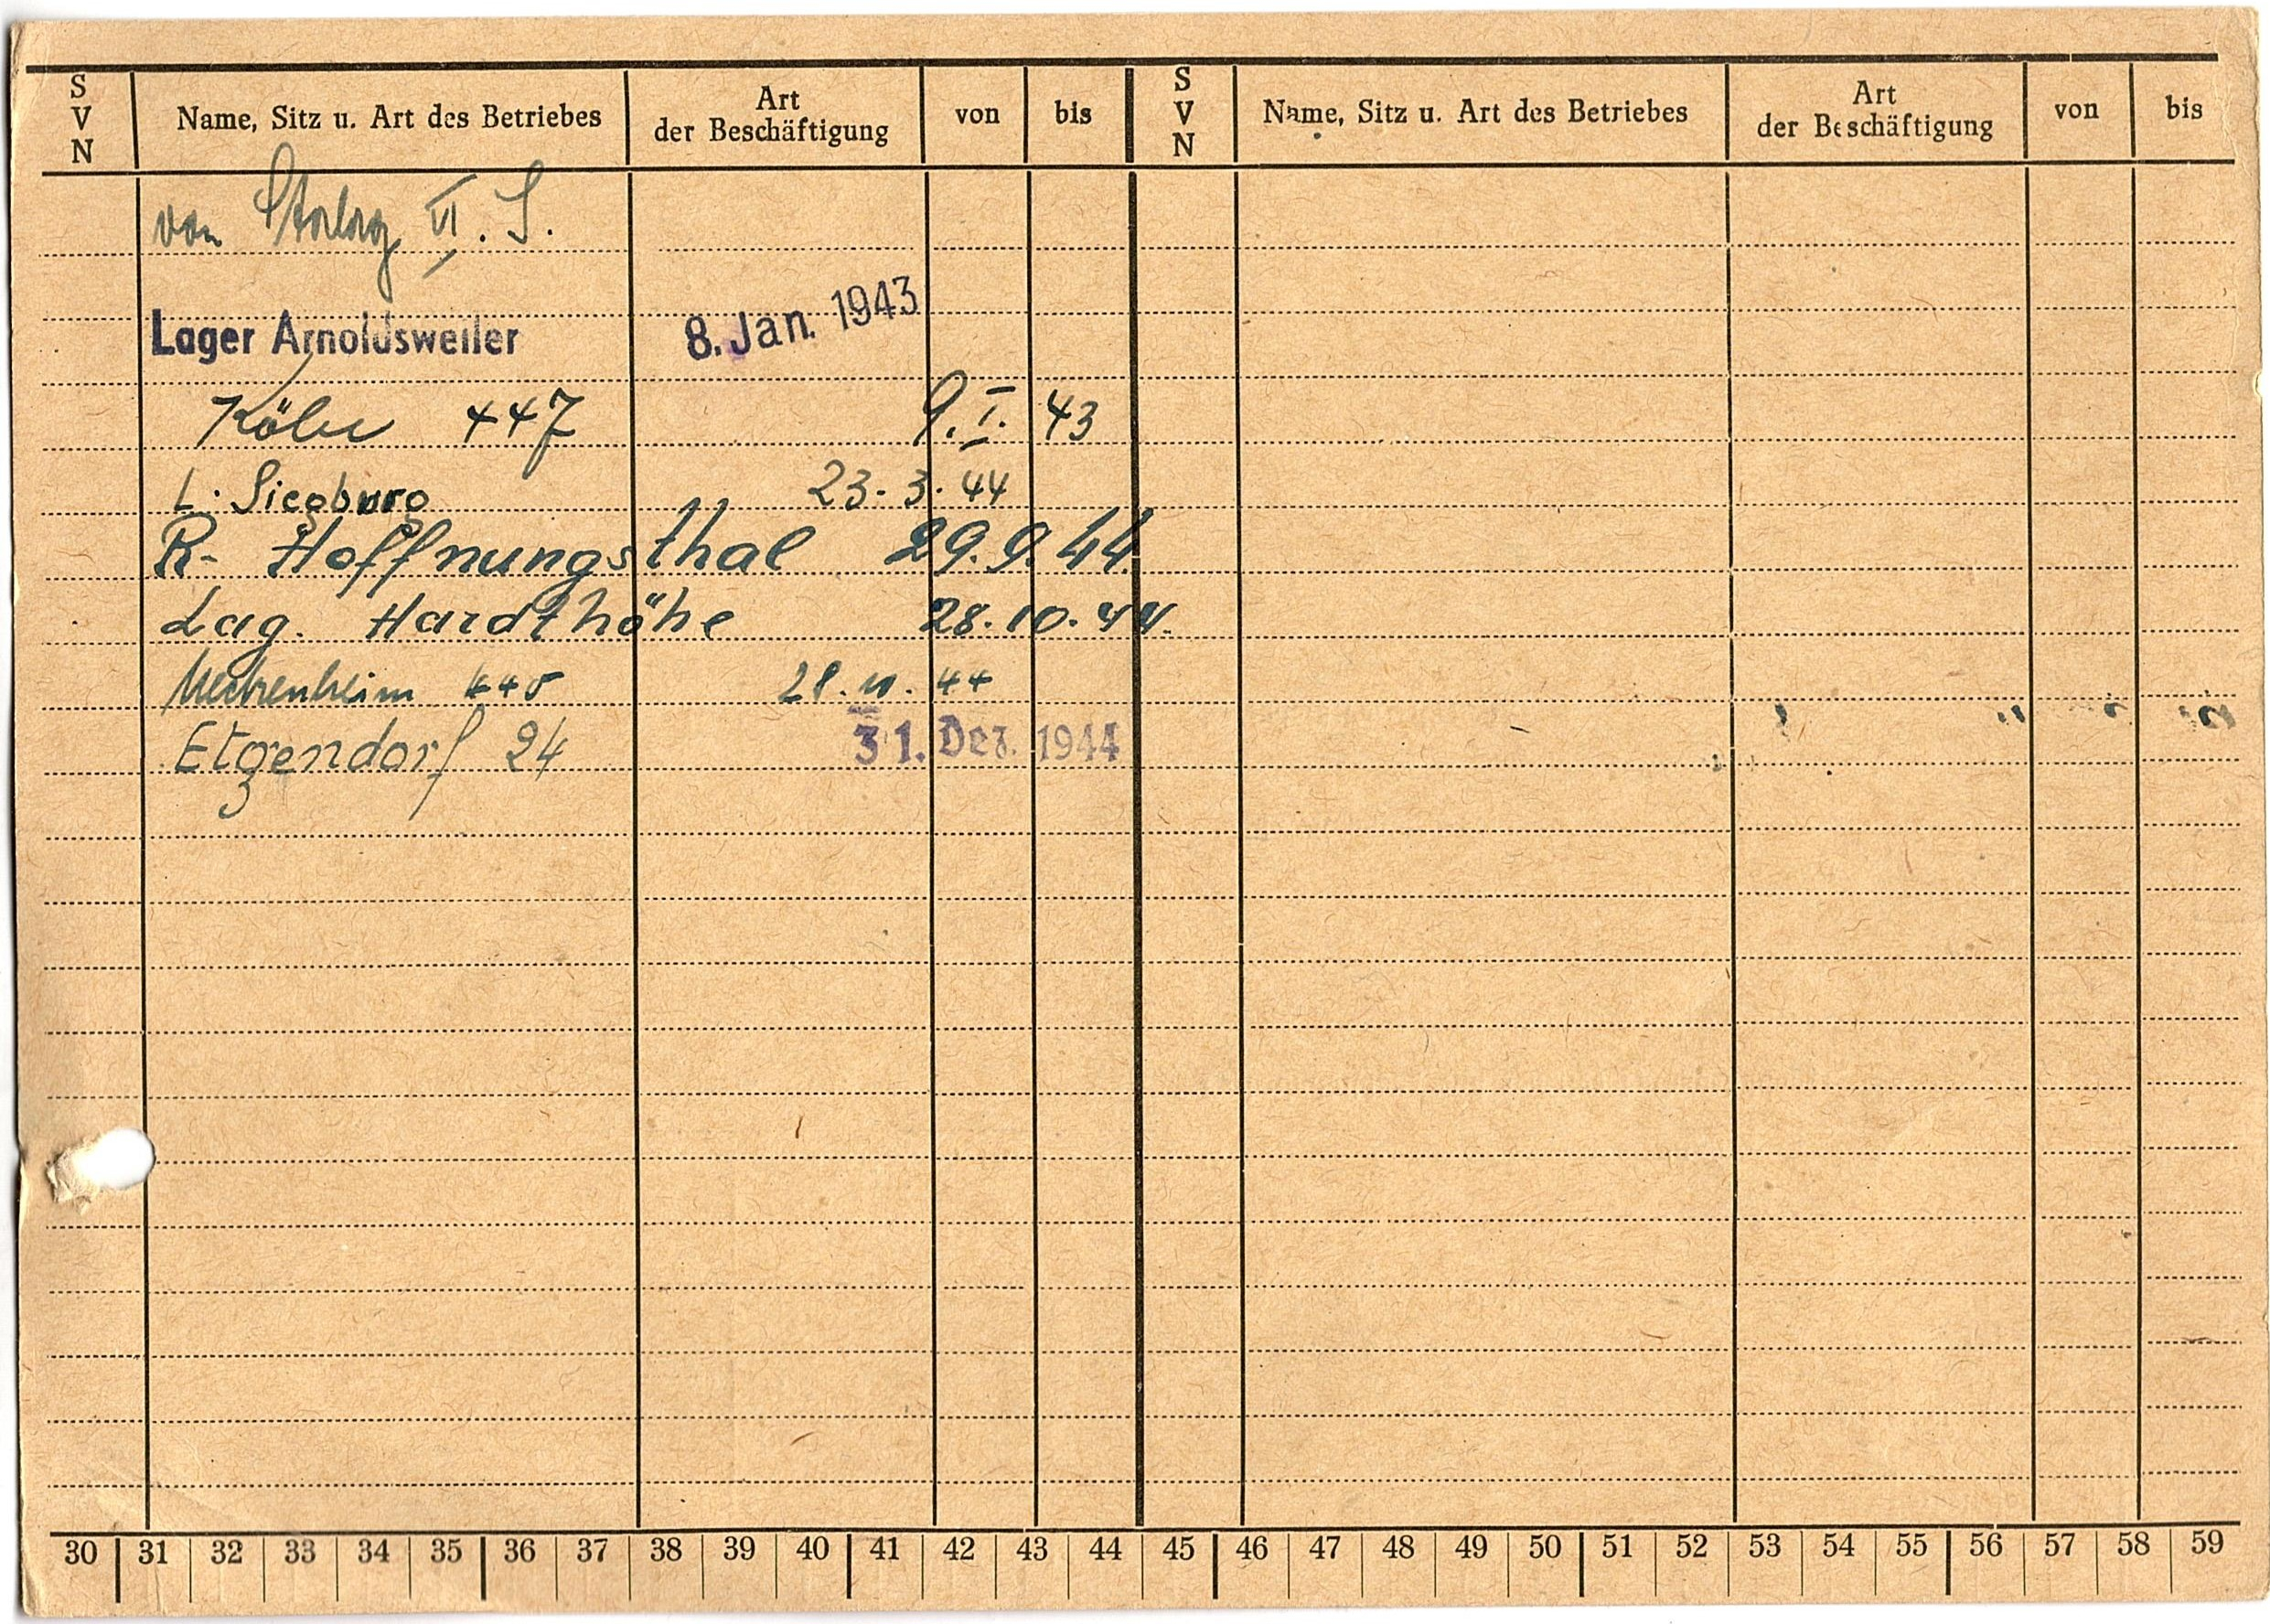 S V N Name, Sitz u. Art des Betriebes Art der Beschäftigung von bis S V N Name, Sitz u. Art des Betriebes Art der Beschäftigung von bis
von Stalag VI. J.
Lager Arnoldsweiler 8. Jan. 1943
Köln 447 9. I. 43
L. Siegburg 23. 3. 44
R- Hoffnungsthal 29. 9. 44
Lag. Hardthöhe 28. 10. 44.
Meckenheim 28. 11. 44
Etzgendorf 24 31. Dez. 1944
30 31 32 33 34 35 36 37 38 39 40 41 42 43 44 45 46 47 48 49 50 51 52 53 54 55 56 57 58 59